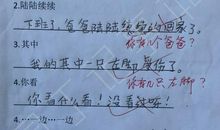 2.陆陆续续
下班了,爸爸陆陆续续的回家了。
你有几个爸爸?
3.其中
我的其中一只左脚受伤了。
你有几只左脚?
4.你看
你看什么看!没看过啊!
4.…一边…一边